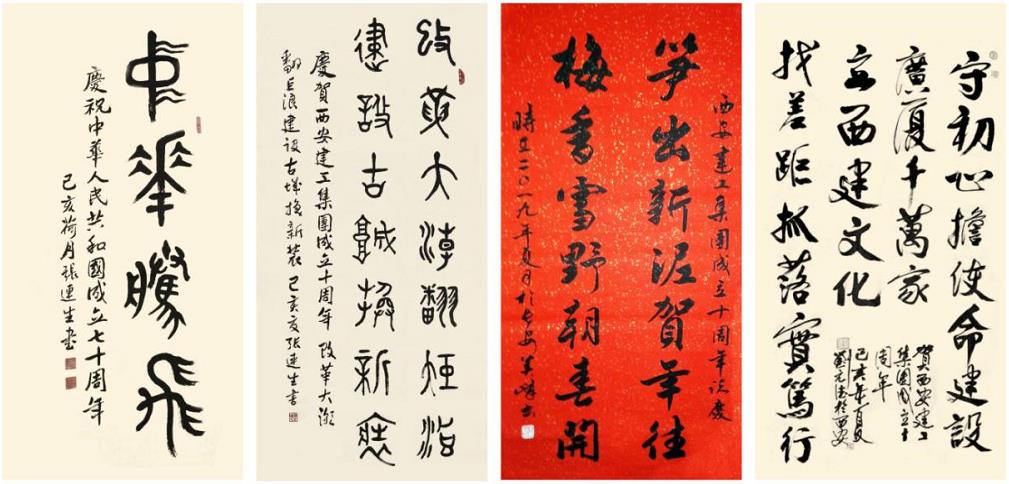 中華騰飛
慶祝中華人民共和國成立七十周年
己亥荷月張連生書
改革大潮翻巨浪
建設古城換新裝
慶賀西安建工集團成立十周年 改革大潮
翻巨浪建設古城換新裝 己亥夏張連生書
西安建工集團成立十周年誌慶
笋出新泥賀年往
梅香雪野朝春開
時在二〇一九年夏月於長安
守初心擔使命建設
廣廈千萬家
立西建文化
找差距抓落實篤行
賀西安建工
集團成立十
周年
己亥年夏
於西安